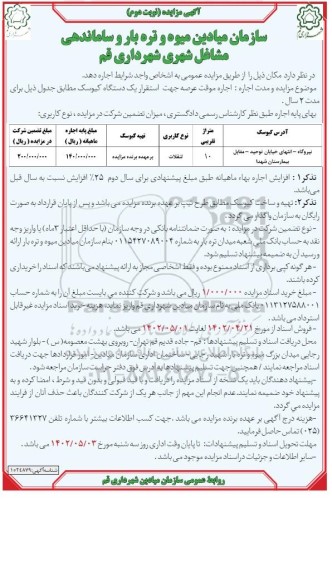 آگهی مزایده (نوبت دوم)
سازمان میادین میوه و تره بار و ساماندهی
مشاغل شهری شهرداری قم
در نظر دارد مکان ذیل را از طریق مزایده عمومی به اشخاص واجد شرایط اجاره دهد.
موضوع مزایده و مدت اجاره : اجاره موقت عرصه جهت استقرار یک دستگاه کیوسک مطابق جدول ذیل برای
مدت ۲ سال .
بهای پایه اجاره طبق نظر کارشناس رسمی دادگستری ، میزان تضمین شرکت در مزایده ، نوع کاربری:
آدرس کیوسک
متراژ تقریبی
نوع کاربری
تهیه کیوسک
مبلغ پایه اجاره ماهیانه ( ریال )
مبلغ تضمین شرکت در مزایده ( ریال )
نیروگاه – انتهای خیابان توحید – مقابل بیمارستان شهدا
۱۰
تنقلات
برعهده برنده مزایده
۱۴۰/۰۰۰/۰۰۰
۴۰۰/۰۰۰/۰۰۰
تذکر۱ : افزایش اجاره بهاء ماهیانه طبق مبلغ پیشنهادی برای سال دوم ۲۵٪ افزایش نسبت به سال قبل
می‌باشد.
تذکر۲: تهیه و ساخت کیوسک مطابق طرح تیپ بر عهده برنده مزایده می باشد و پس از پایان قرارداد به صورت
رایگان به سازمان واگذار می گردد.
- نوع تضمین شرکت در مزایده : به صورت ضمانتنامه بانکی در وجه سازمان (با حداقل اعتبار ۳ماه) یا واریز وجه
نقد به حساب بانک ملی شعبه میدان تره بار به شماره ۰۱۱۵۴۲۷۰۸۹۰۰۴ بنام سازمان میادین میوه و تره بار ارائه
و رسید آن به ضمیمه پیشنهاد تسلیم شود.
- هر گونه کپی برداری از اسناد ممنوع بوده و فقط اشخاصی مجاز به ارائه پیشنهاد می باشند که اسناد را خریداری
کرده باشند.
- مبلغ خرید اسناد مزایده ۱/۰۰۰/۰۰۰ ریال می باشد و شرکت کننده می بایست مبلغ آن را به شماره حساب
۰۱۱۳۱۲۷۵۸۸۰۰۱ بانک ملی به نام سازمان میادین شهرداری قم واریز نماید هزینه خرید اسناد مزایده غیرقابل
استرداد می باشد.
- فروش اسناد از مورخ ۱۴۰۲/۰۴/۳۱ لغایت ۱۴۰۲/۰۵/۰۱ می باشد.
محل دریافت اسناد و تسلیم پیشنهادها : قم- جاده قدیم قم تهران- روبروی بهشت معصومه(س) - بلوار شهید
رجایی میدان بزرگ میوه و تره بار شهید رجایی - ساختمان اداری سازمان میادین - امور قراردادها جهت دریافت
اسناد مراجعه نمایند / همچنین جهت تسلیم پیشنهادها به آدرس فوق دفتر حراست سازمان مراجعه شود.
-هزینه درج آگهی بر عهده برنده مزایده می باشد .جهت کسب اطلاعات بیشتر با شماره تلفن ۳۶۶۴۱۳۲۷
(۰۲۵) تماس حاصل فرمایید.
مهلت تحویل اسناد و تسلیم پیشنهادات: تا پایان وقت اداری روز سه شنبه مورخ ۱۴۰۲/۰۵/۰۳ می باشد .
-سایر اطلاعات و جزئیات در اسناد مزایده موجود می باشد .
روابط عمومی سازمان میادین شهرداری قم